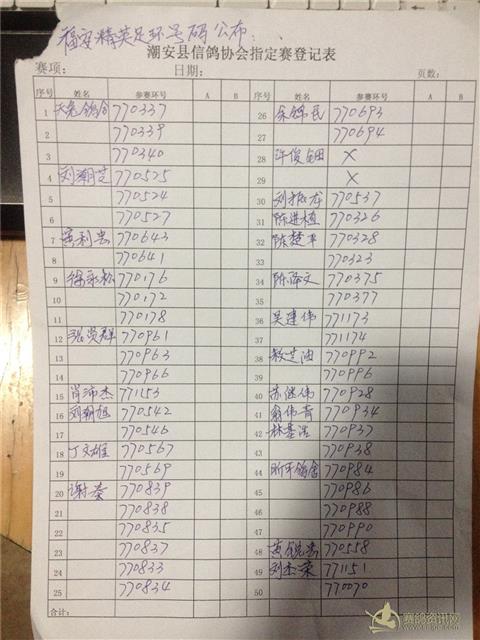 福安精英足环号码公布:
潮安县信鸽协会指定赛登记表
赛项: 日期: 页数:
序号 姓名 参赛环号 A B 序号 姓名 参赛环号 A B
1 天亮鸽舍 770337
2 770339
3 770340
4 刘潮芝 770525
5 770524
6 770527
7 770643
8 770641
9 徐永松 770176
10 770172
11 770178
12 张贤群 770961
13 770963
14 770966
15 肖沛杰 771153
16 刘朝旭 770542
17 770546
18 丁文雄 770567
19 770569
20 谢泰 770839
21 770838
22 770835
23 770837
24 770833
25 770834
合计:
26 余锦民 770693
27 770694
28 许俊钿 X
29 X
30 刘振龙 770537
31 陈进植 770326
32 陈楚平 770328
33 770323
34 陈泽文 770375
35 770377
36 吴建伟 771173
37 771174
38 770992
39 770996
40 苏继伟 770928
41 翁伟青 770934
42 林基浩 770937
43 770938
44 昕平鸽舍 770984
45 770986
46 770988
47 770990
48 770558
49 刘杰荣 771151
50 770070
赛鸽资讯网